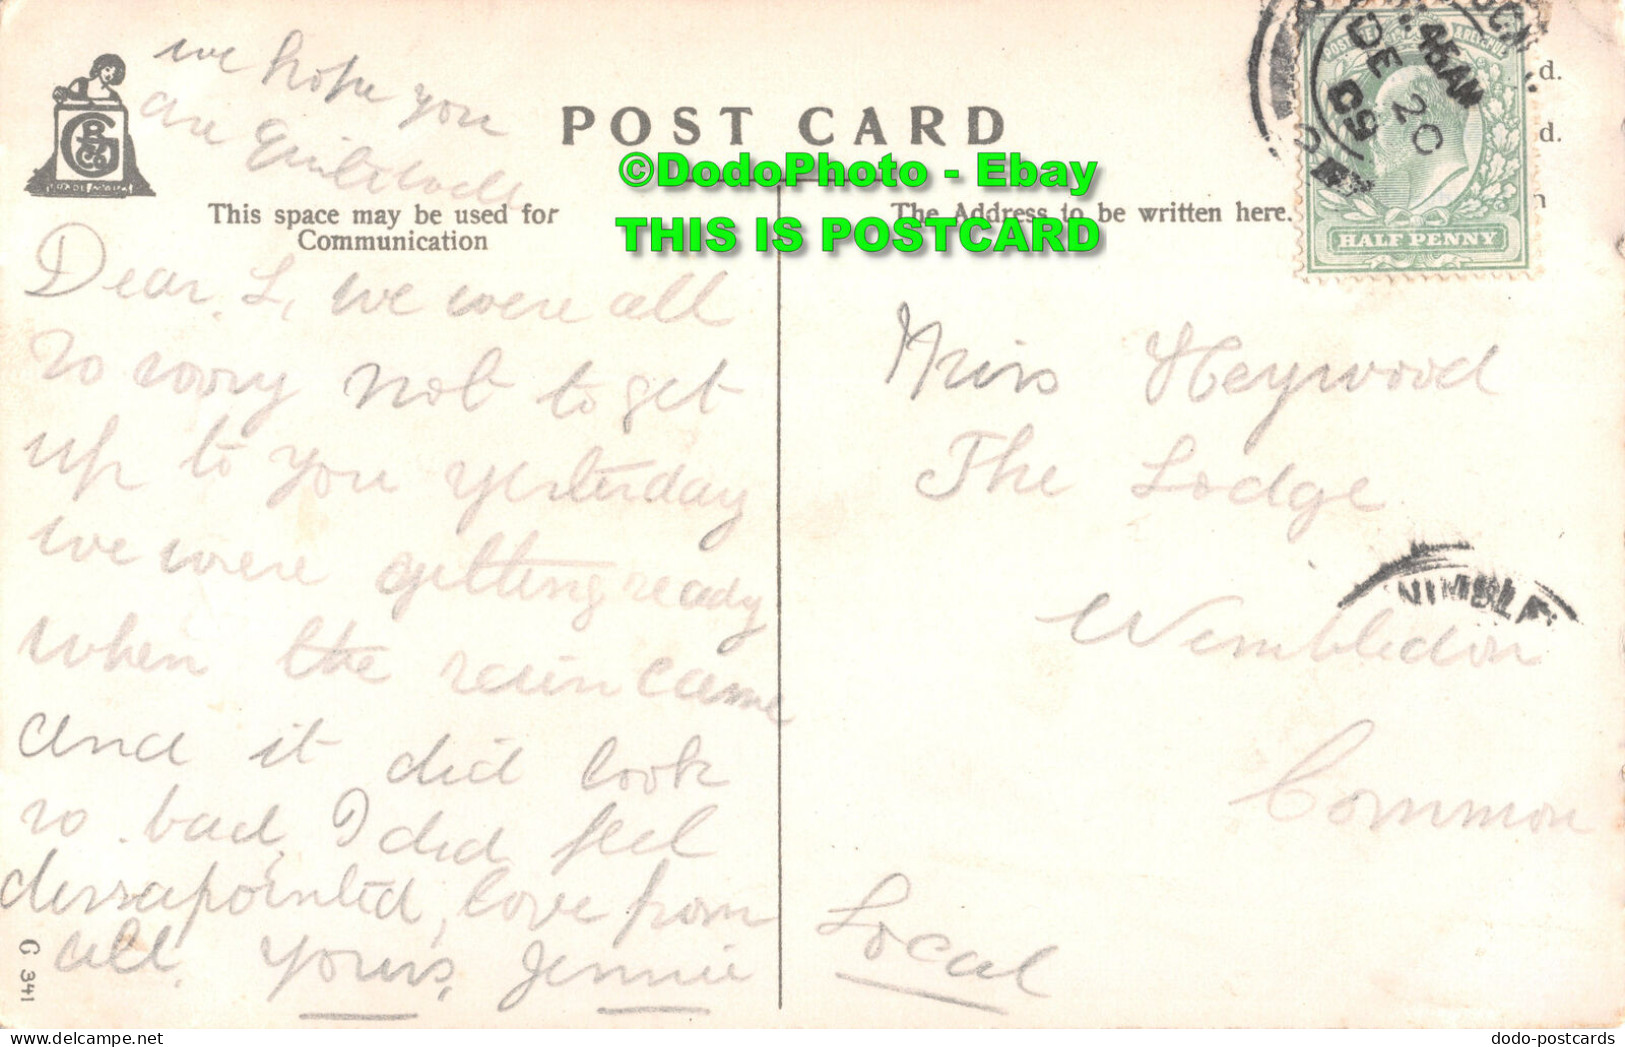 we hope you
are quite well
POST CARD
©DodoPhoto - Ebay
THIS IS POSTCARD
This space may be used for
Communication
The Address to be written here.
TRADE MARK
Dear L, we were all
so sorry not to get
up to you yesterday
we were getting ready
when the rain came
and it did look
so bad, I did feel
dissapointed, love from
all, yours, Jennie
G 341
45 AM
DE 20
09
HALF PENNY
d.
d.
n
Miss Heywood
The Lodge
Wimbledon
Common
Local
WIMBLE
dodo-postcards